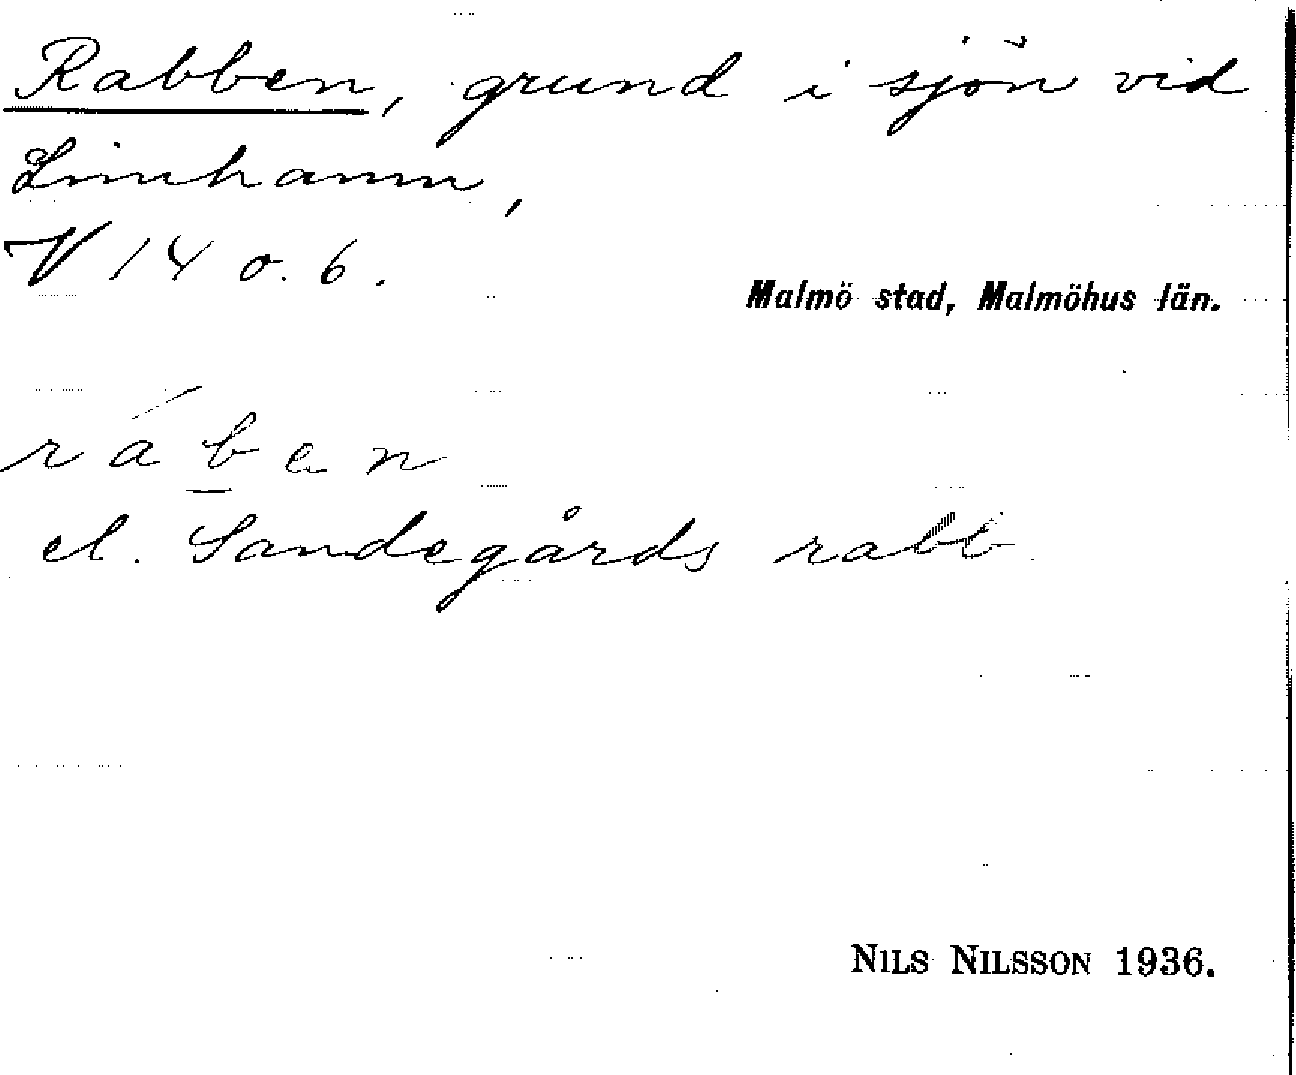 Rabben, grund i sjön vid
Limhamn,
V 14 o. 6.
Malmö stad, Malmöhus län.
ráb̲en
el. Sandegårds rabb
NILS NILSSON 1936.